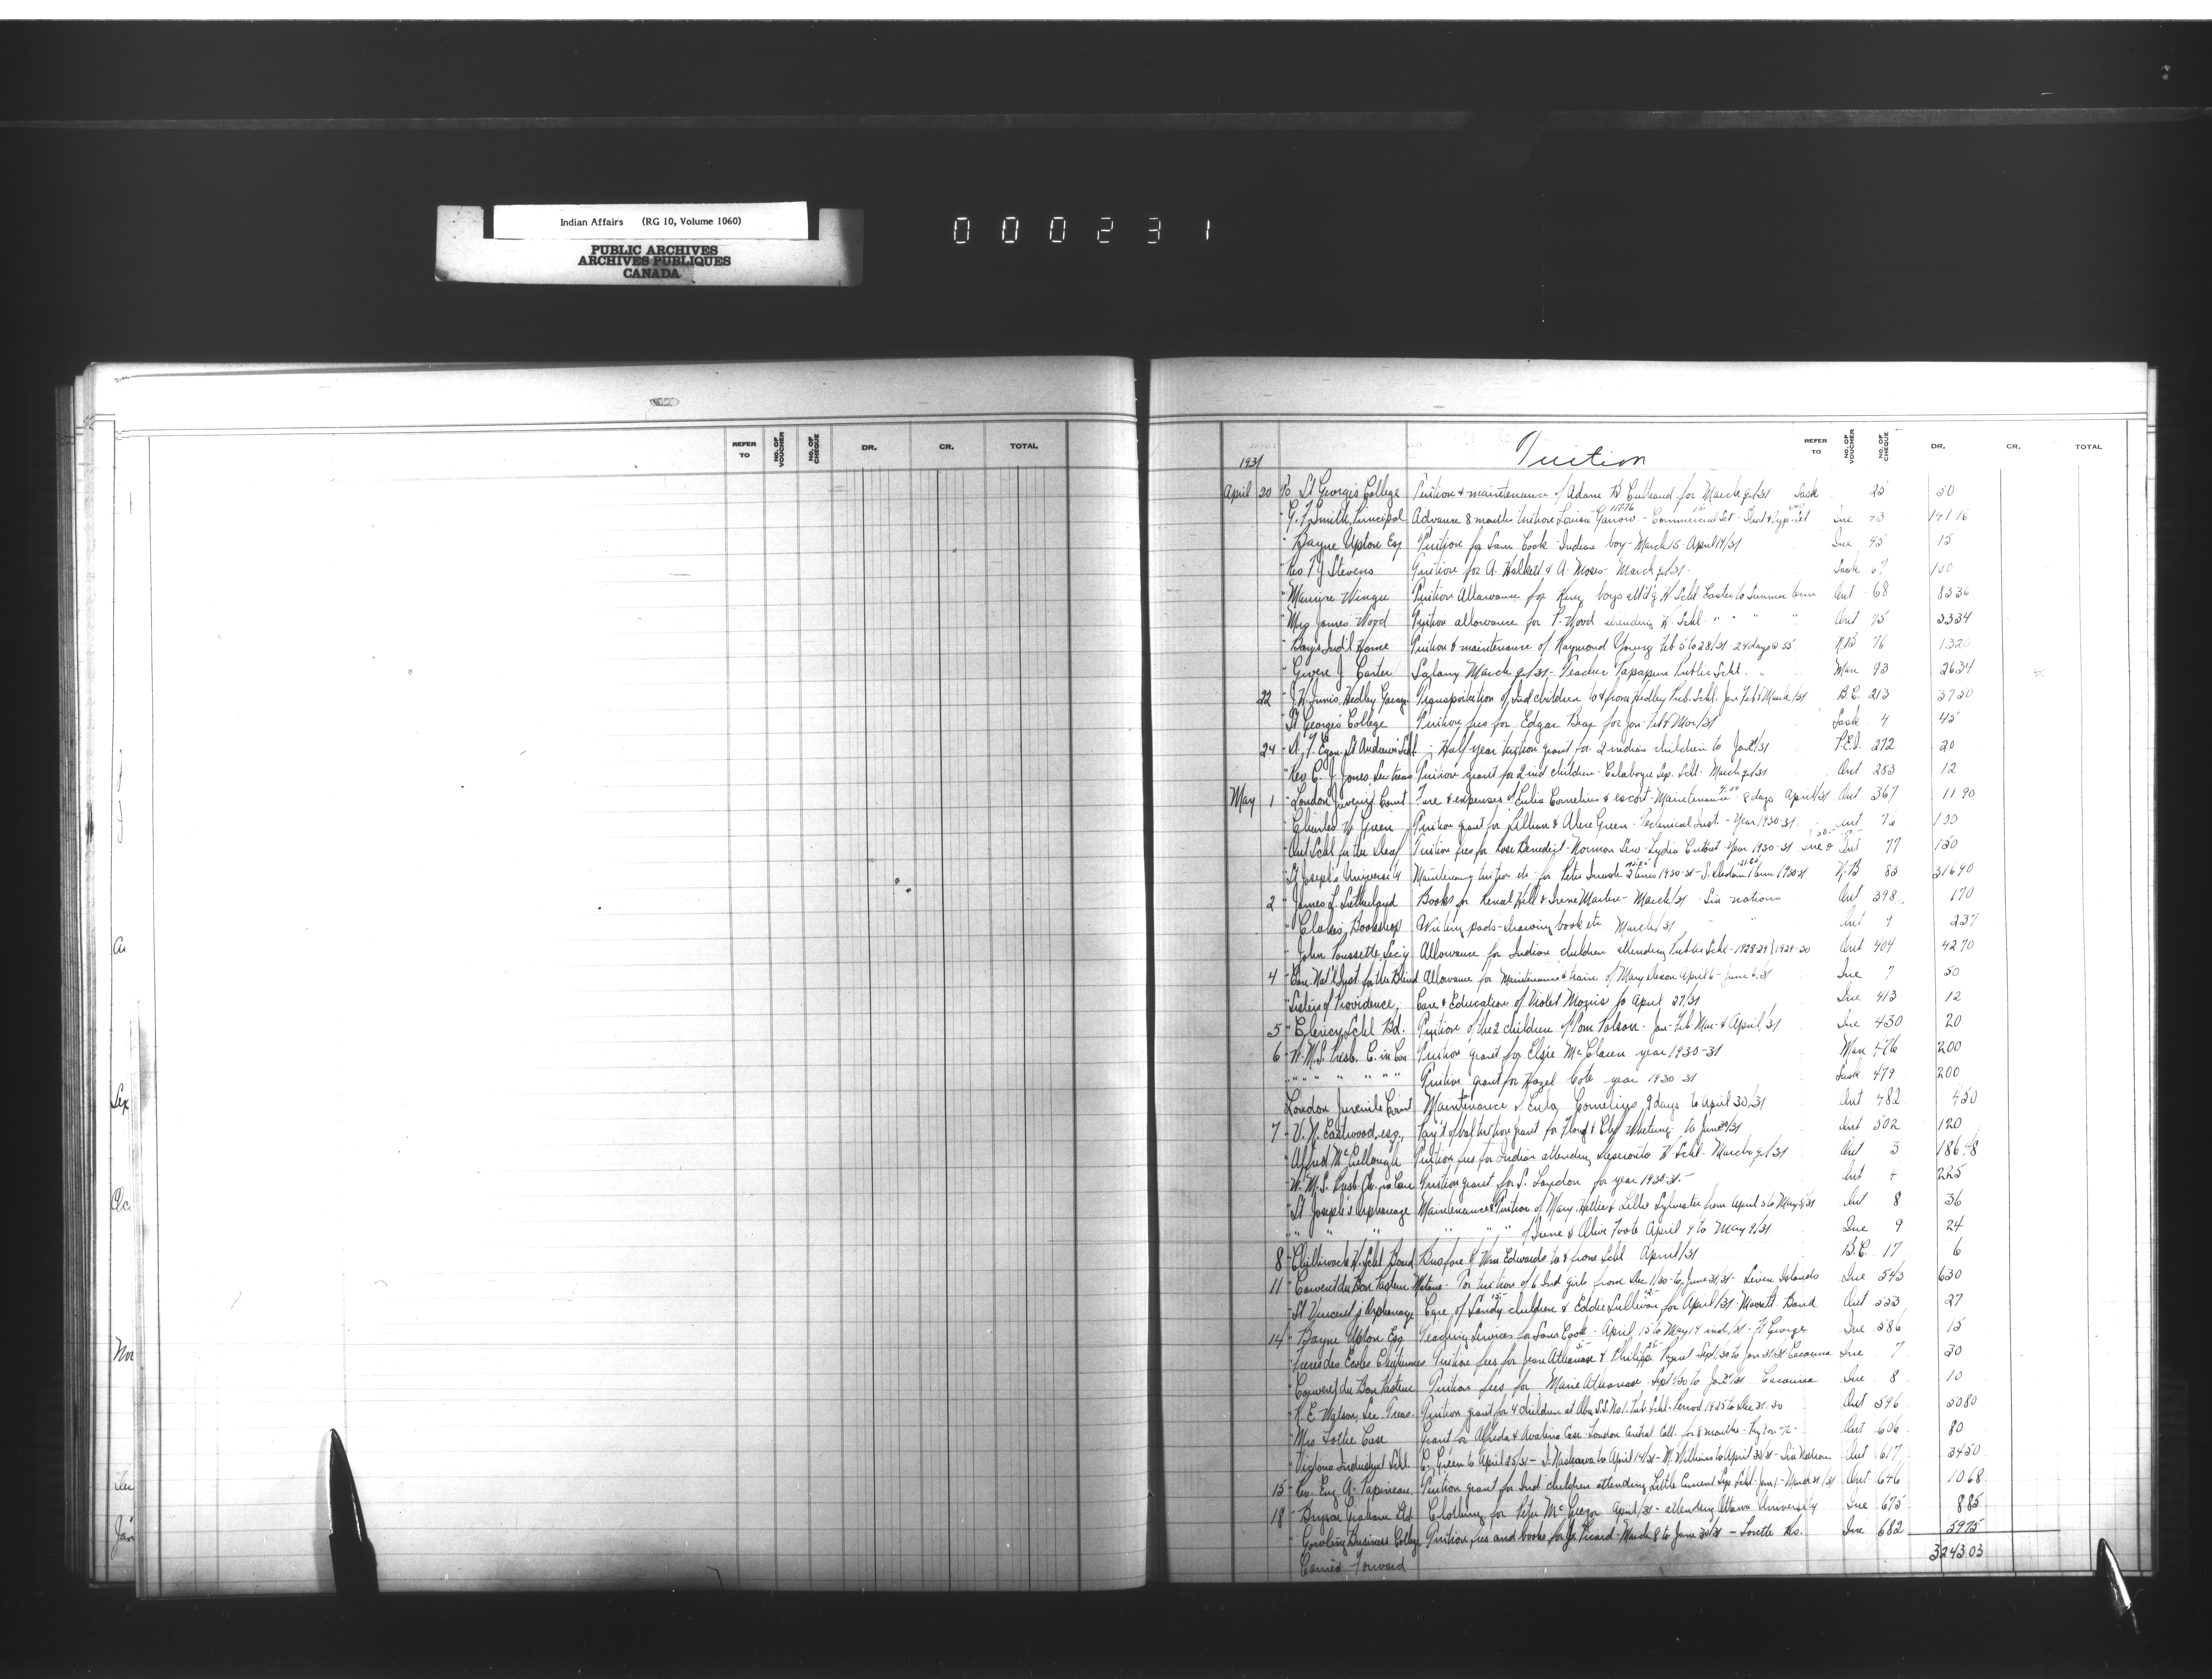 Indian Affairs (RG 10, Volume 1060)
PUBLIC ARCHIVES
ARCHIVES PUBLIQUES
CANADA
000231
REFER TO NO. OF VOUCHER NO. OF CHEQUE DR. CR. TOTAL
1931 Tuition REFER TO NO. OF VOUCHER NO. OF CHEQUE DR. CR. TOTAL
April 20 To St Georges College Tuition & maintenance of Adam B for March qr/31 Sask 25 50
" G. F. Smith, Principal Advance 8 months tuition Louisa - Commercial 43 141 16
" Bayne Upton Esq Tuition for Sam Cook - Indian boy - March 15 - April 14/31 45 15
" Rev T J Stevens Tuition for A. Halkett & A. Moses - March qr/31 Sask 67 100
" Maurice Wingu Tuition Allowance for King boys att'd'g H. Schl Easter to Summer term Ont 68 83 36
" Mrs James Wood Tuition allowance for P. Wood attending H. Schl " " " Ont 75 33 34
" Boys Ind'l Home Tuition & maintenance of Raymond Young Feb 5 to 28/31 - 24 days @ 55 N.B 76 13 20
" Gwen J. Carter Salary March qr/31 - Teacher Public Schl. Man 93 26 34
22 " J. H. Innis, Hedley Garage Transportation of Ind children to & from Hedley Pub. Schl. Jan Feb & March/31 B.C. 213 37 50
" St Georges College Tuition fees for Edgar Bear for Jan - Feb & Mar/31 Sask 4 45
24 " Egan, St Andrews Schl Half year tuition grant for 2 indian children to Jan/31 P.E.I. 272 20
" Rev C. J. Jones, Sec treas Tuition grant for 2 ind children - Calabogie Sep. Schl - March qr/31 Ont 283 12
May 1 " London Juvenile Court Fare & expenses of Cornelius & escort - Maintenance 8 days April/31 Ont 367 11 90
" Charles W Green Tuition grant for Lillian & Green - Technical Inst - Year 1930-31 Ont 76 100
" Ont Schl for the Deaf Tuition fees for Rose Benedict - Norman - Lydia Year 1930-31 & Ont 77 150
" St Joseph's University Maintenance, tuition etc for Peter 2 terms 1930-31 - 1 term 1930-31 N.B 83 316 90
2 " James L. Sutherland Books for Hill & Irene Martin - March/31 - Six nations Ont 398 1 70
" Clokes Bookshop Writing pads - drawing book etc March/31 " " Ont 9 2 37
" John Poussette, Sec'y Allowance for Indian children attending Public Schl - 1928-29 & 1929-30 Ont 404 42 70
4 " Can. Nat'l Inst. for the Blind Allowance for Maintenance & train. of Mary April 6 - June 6/31 7 50
" Sisters of Providence Care & Education of Violet Morris to April 27/31 413 12
5 " Schl Bd. Tuition of the 2 children of Tom Polson - Jan - Feb - Mar - & April/31 430 20
6 " W. M. S. Presb. C. in Can Tuition grant for Elsie McClaren year 1930-31 Man 476 200
" " " " " " Tuition grant for Hazel Cote year 1930-31 Sask 479 200
London Juvenile Court Maintenance of Cornelius, 9 days to April 30/31 Ont 482 4 50
7 " V. N. Eastwood, esq., Pay't of bal tuition grant for Floyd & to June/31 Ont 502 120
" Alfred McCullough Tuition fees for Indian attending Deseronto H. Schl - March qr/31 Ont 3 186 48
" W. M. S. Presb. Ch. in Can Tuition grant for S. London for year 1930-31 - Ont 4 225
" St Joseph's Orphanage Maintenance & Tuition of Mary, Hattie & Lillie Sylvester from April 5 to May 5/31 Ont 8 36
" " " " " " of Irene & Olive Foote April 9 to May 9/31 9 24
8 " Chilliwack H. Schl Board Bus fare of Wm Edwards to & from Schl April/31 B.C. 17 6
11 " Convent du Bon Pasteur Matane - For tuition of 6 Ind girls from Dec 1/30 - to June 31/31 - Seven Islands 543 630
" St Vincent's Orphanage Care of Sandy children & Eddie Sullivan for April/31 - Band Ont 553 27
14 " Bayne Upton Esq Teaching Services for Sam Cook - April 15 to May 14 incl/31 - Ft George 586 15
" Freres des Ecoles Chretiennes Tuition fees for Jean Athanase & Philippe Sept/30 to Jan 31/31 Cacouna 7 30
" Convent du Bon Pasteur Tuition fees for Marie Athanase Sept/30 to Jan/31 Cacouna 8 10
" R. E. Watson, Sec. Treas. Tuition grant for 4 children at S.S. No 1 - Pub. Schl - Period 1925 to Dec 31. 30 Ont 596 50 80
" Mrs Lottie Case Grant for Alfreda & Case - London Central Coll. for 8 months Ont 606 80
" Victoria Industrial Schl. C. Green to April 25/31 - to April 14/31 - M. Williams to April 30/31 - Six Nations Ont 617 34 50
15 " Rev. Eug. A. Papineau, Tuition grant for Ind children attending Little Current Sep. Schl. Jan 1 - March 31/31 Ont 646 10 68
18 " Bryson Graham Ltd Clothing for Peter McGregor April/31 - attending Ottawa University 675 8 85
" Gowling Business College Tuition fees and books for Picard - March 8 to June 30/31 - Lorette Res. 682 59 75
Carried Forward 3243 03